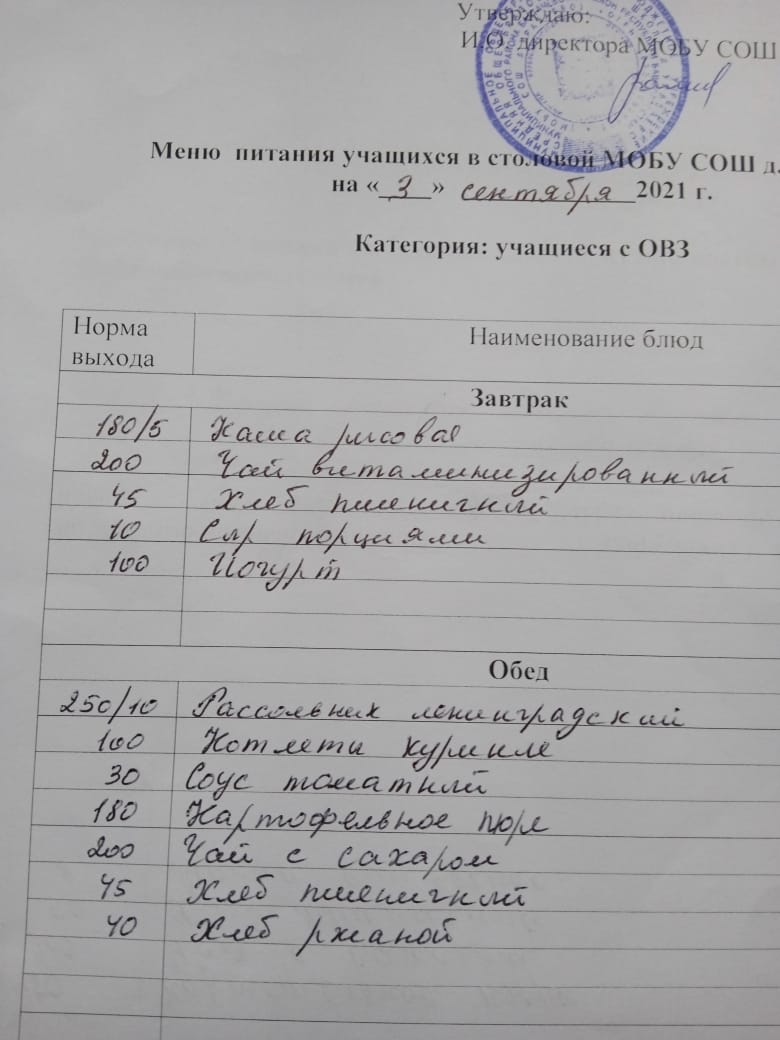 Утверждаю:
И.О. директора МОБУ СОШ
Меню питания учащихся в столовой МОБУ СОШ д.
на «3» сентября 2021 г.
Категория: учащиеся с ОВЗ
Норма выхода Наименование блюд
Завтрак
180/5 Каша рисовая
200 Чай витаминизированный
45 Хлеб пшеничный
10 Сыр порциями
100 Йогурт
Обед
250/10 Рассольник ленинградский
100 Котлеты куриные
30 Соус томатный
180 Картофельное пюре
200 Чай с сахаром
45 Хлеб пшеничный
40 Хлеб ржаной